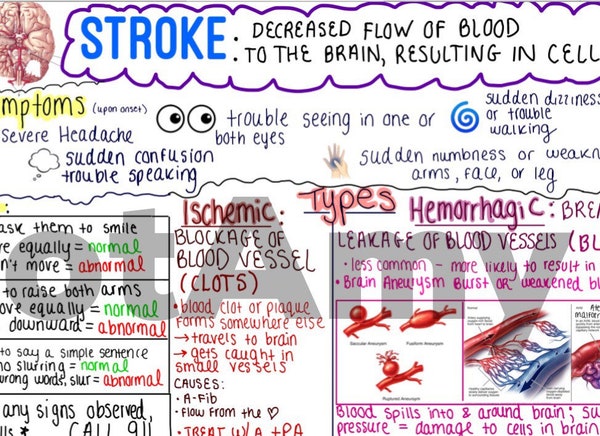 STROKE: DECREASED FLOW OF BLOOD
TO THE BRAIN, RESULTING IN CELL
mptoms (upon onset)
severe Headache
sudden confusion
trouble speaking
trouble seeing in one or
both eyes
sudden dizziness
or trouble
walking
sudden numbness or weakn
arms, face, or leg
Types
ask them to smile
re equally = normal
n't move = abnormal
to raise both arms
ove equally = normal
downward = abnormal
to say a simple sentence
no slurring = normal
wrong words, slur = abnormal
any signs observed,
CALL 911
Ischemic:
BLOCKAGE OF
BLOOD VESSEL
(CLOTS)
• blood clot or plaque
forms somewhere else
→ travels to brain
→ gets caught in
small vessels
CAUSES:
• A-Fib
• Flow from the
• TREAT W/ a tPA
Hemorrhagic: BREA
LEAKAGE OF BLOOD VESSELS (BL
• less common - more likely to result in
• Brain Aneurysm Burst OR weakened bl
Saccular Aneurysm
Fusiform Aneurysm
Ruptured Aneurysm
Blood spills into & around brain; su
pressure = damage to cells in brain